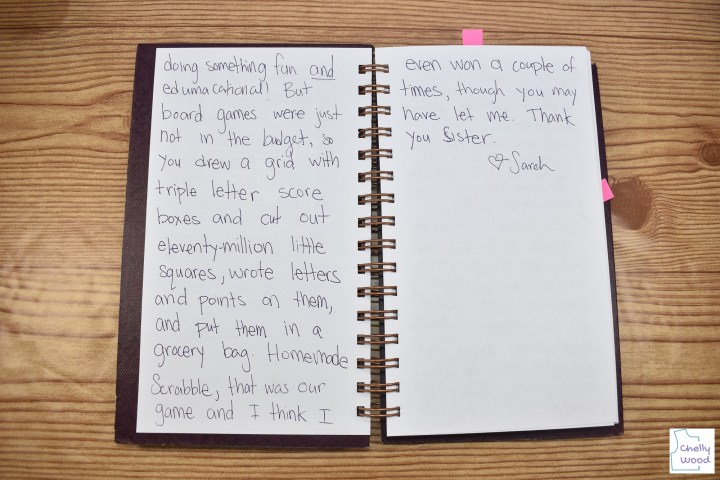 doing something fun and
edumacational! But
board games were just
not in the budget, so
you drew a grid with
triple letter score
boxes and cut out
eleventy-million little
squares, wrote letters
and points on them,
and put them in a
grocery bag. Homemade
Scrabble, that was our
game and I think I
even won a couple of
times, though you may
have let me. Thank
you Sister.
♡ Sarah
Chelly
Wood